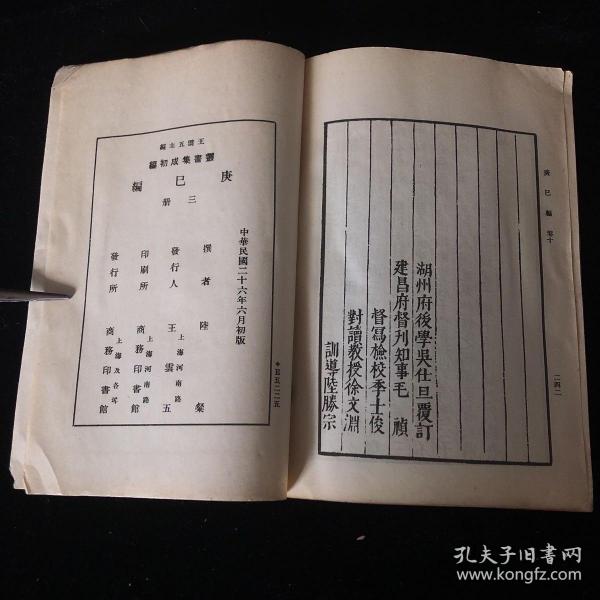 庚巳編 卷十
二四二
湖州府後學吳仕旦覆訂
建昌府督刋知事毛 禎
督寫檢校季士俊
對讀教授徐文淵
訓導陸勝宗
王雲五主編
叢書集成初編
庚巳編
三册
中華民國二十六年六月初版
撰者 陸粲
發行人 王雲五
上海河南路
印刷所 商務印書館
上海河南路
發行所 商務印書館
上海及各埠
孔夫子旧书网
www.kongfz.com